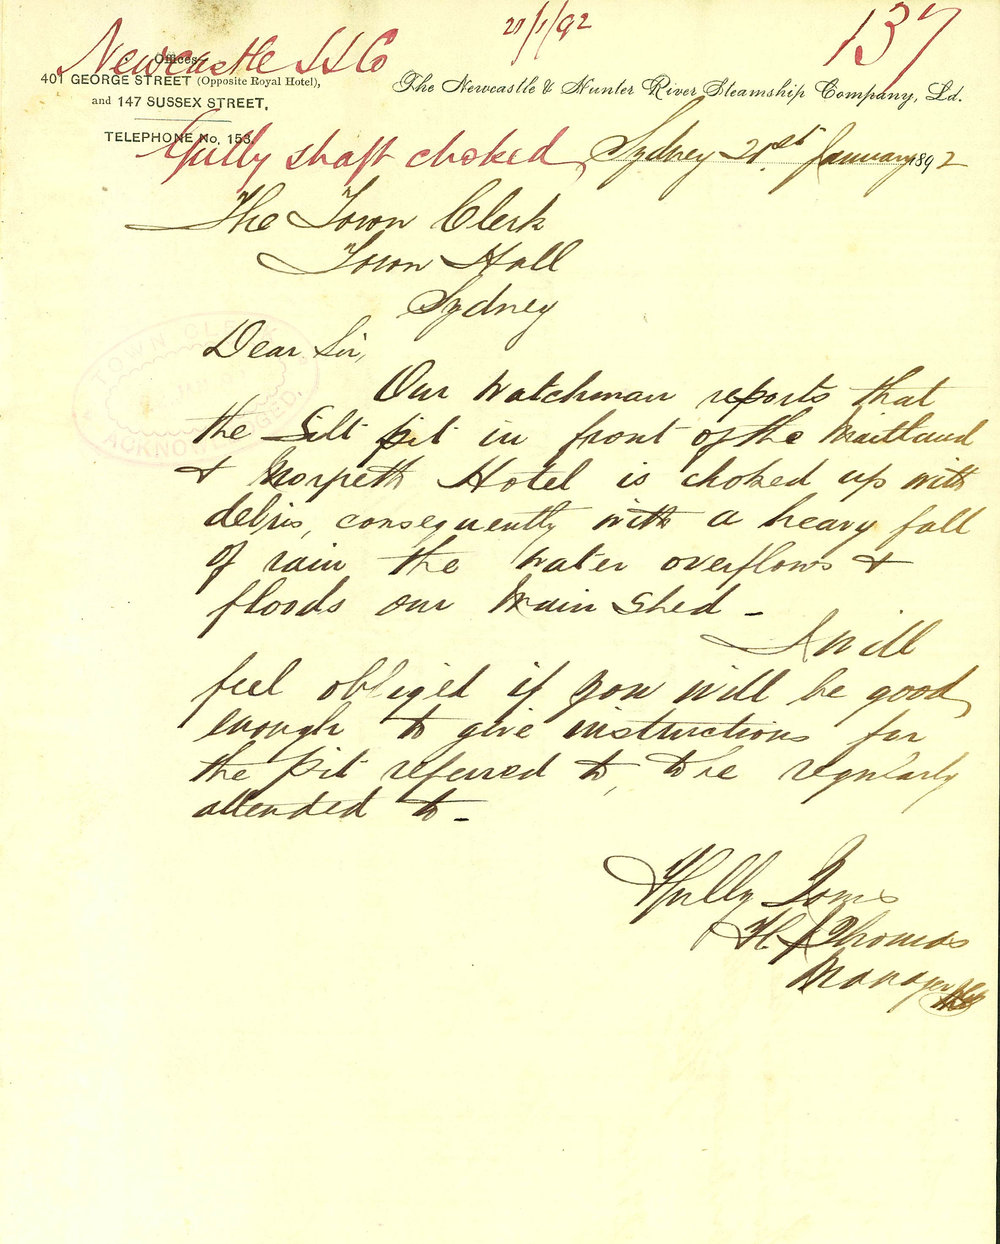 21/1/92
137
Newcastle S S Co
Offices
401 GEORGE STREET (Opposite Royal Hotel),
and 147 SUSSEX STREET,
TELEPHONE No. 153.
The Newcastle & Hunter River Steamship Company, Ld.
Gully shaft choked
Sydney 21st January 1892
The Town Clerk
Town Hall
Sydney
TOWN CLERK
ACKNOWLEDGED.
Dear Sir,
Our Watchman reports that
the Silt pit in front of the Maitland
& Morpeth Hotel is choked up with
debris, consequently with a heavy fall
of rain the water overflows &
floods our Main Shed -
I will
feel obliged if you will be good
enough to give instructions for
the pit referred to, to be regularly
attended to -
Yours
H. J. Thomas
Manager